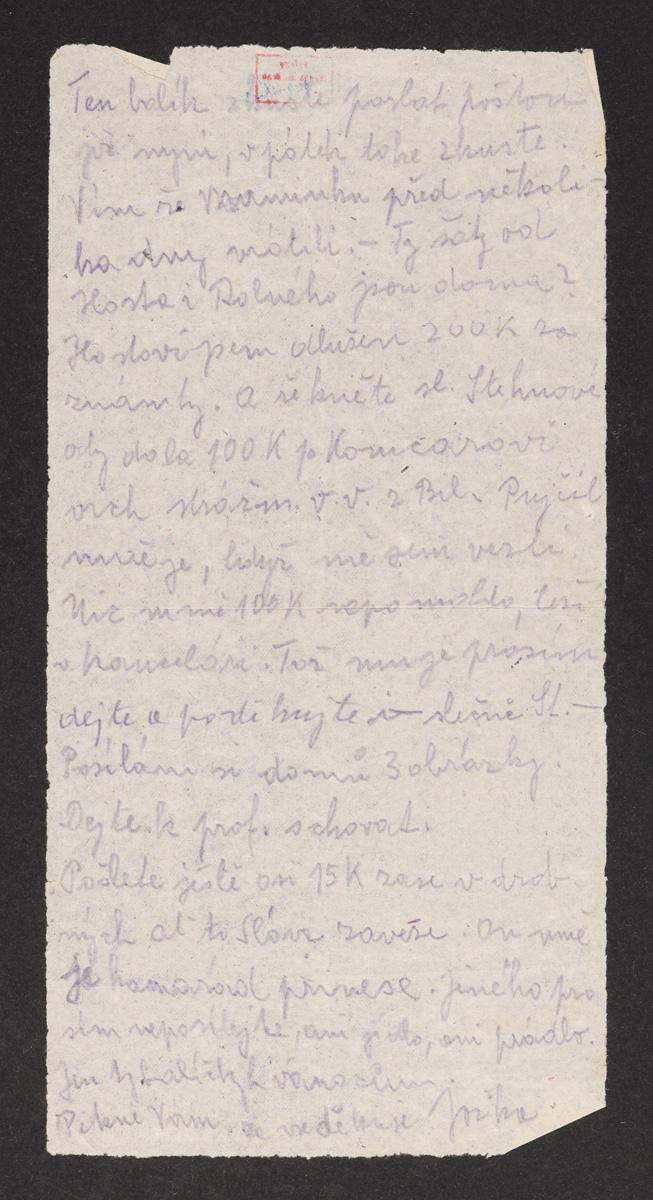 Ten balík zkuste poslat poštou
již nyní, v pátek toho zkuste.
Vím že Maminku před několi-
ka dny vrátili. – Ty šáty od
Hosta i Rolného jsou doma?
Hostovi jsem dlužen 200 K za
známky. A řekněte sl. Stehnové
aby dala 100 K p
vrch strážm. v. v. z Bil. Pujčil
mně je, když mě sem vezli.
Nic mně 100 K nepomohlo, leží
v kanceláři. Tož mu je prosím
dejte a poděkujte i slečně St. –
Posílám si domů 3 obrázky.
Dejte k prof. schovat.
Pošlete ještě asi 15 K zase v drob
ných ať to Sláva zaveze. On mně
je kamarád přinese. Jiného pro
sím neposílejte, ani jídlo, ani prádlo.
Jen ty balíčky k vánocům.
Pěkně Vám za vše děkuji Joska